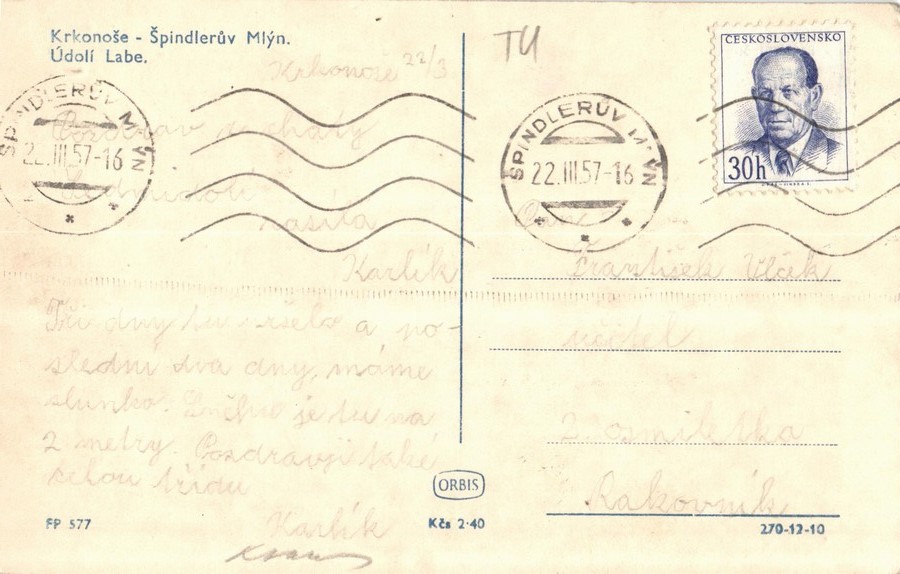 Krkonoše - Špindlerův Mlýn.
Údolí Labe.
TU
ČESKOSLOVENSKO
30h
ŠPINDLERŮV MLÝN
22.III.57-16
ŠPINDLERŮV MLÝN
22.III.57-16
Krkonoše 22/3
Pozdrav z chaty
zasílá
Karlík
Tři dny tu pršelo a po-
slední dva dny máme
slunko. Sněhu je tu na
2 metry. Pozdravuji také
celou třídu
Karlík
František Vlčk
učitel
2. osmiletka
Rakovník
ORBIS
FP 577
Kčs 2·40
270-12-10